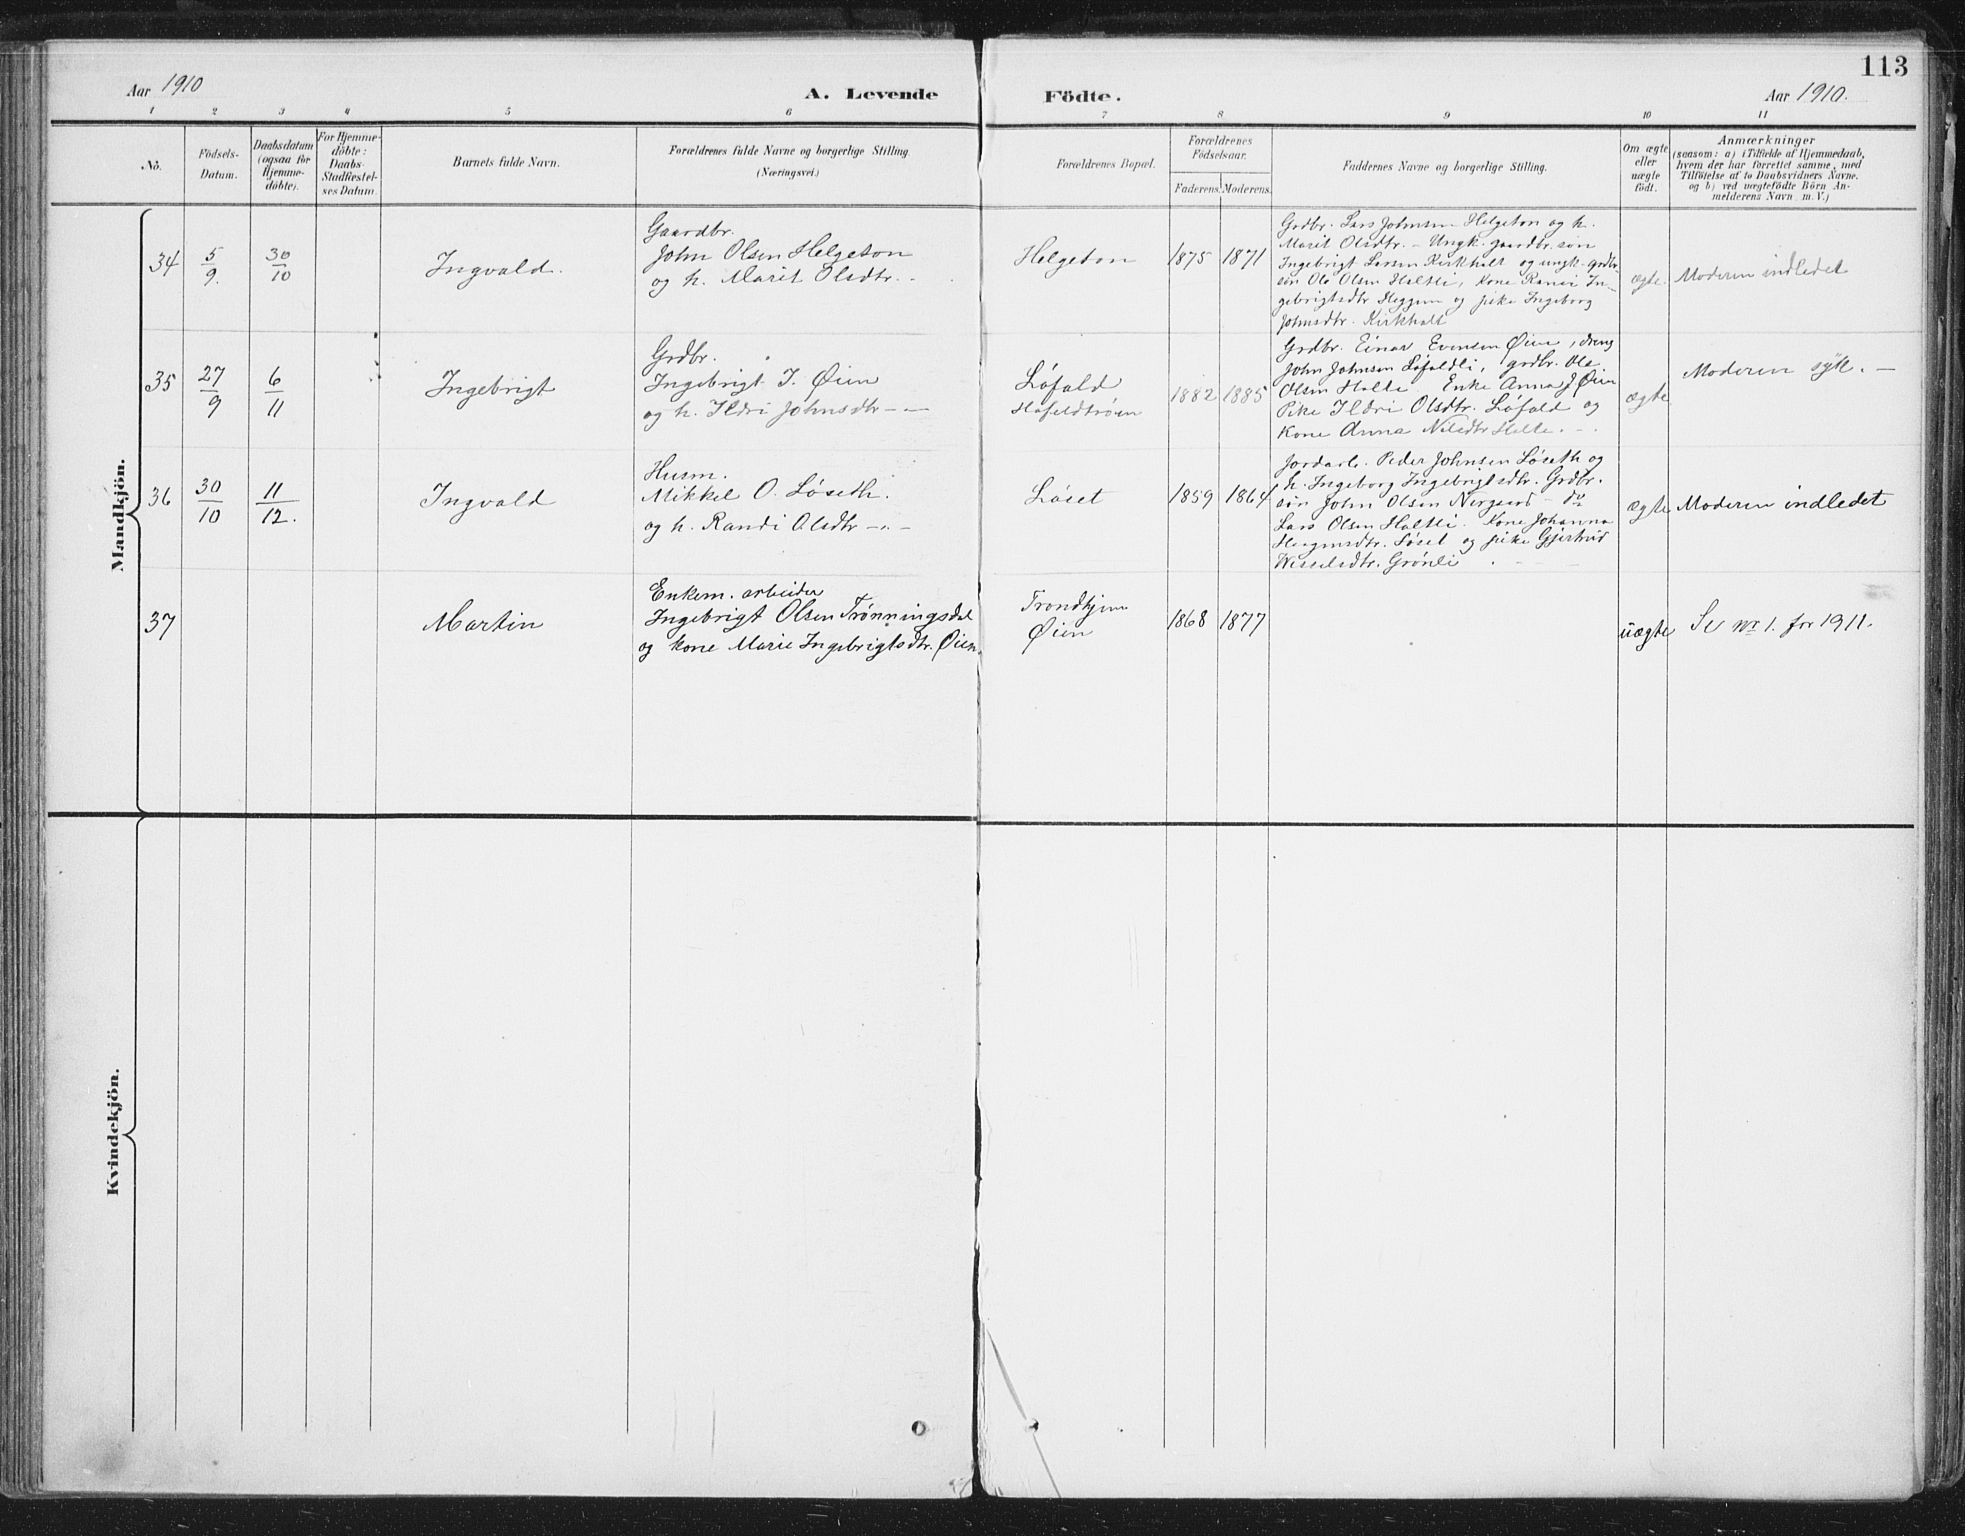 113
Aar 1910
A. Levende
Födte.
Aar 1910.
1 2 3 4 5 6 7 8 9 10 11
No.
Födsels-
Datum.
Daabsdatum
(ogsaa for
Hjemme-
döbte).
For Hjemme-
döbte:
Daabs-
Stadfæstel-
ses Datum.
Barnets fulde Navn.
Forældrenes fulde Navne og borgerlige Stilling.
(Næringsvei.)
Forældrenes Bopæl.
Forældrenes
Födselsaar.
Faderens. Moderens.
Faddernes Navne og borgerlige Stilling.
Om ægte
eller
uægte
födt.
Anmærkninger
(saasom: a) i Tilfælde af Hjemmedaab,
hvem der har forrettet samme, med
Tilföielse af to Daabsvidners Navne.
og b) ved uægtefödte Börn An-
melderens Navn m. V.)
Mandkjön.
34
5
9.
30
10
Ingvald.
Gaardbr.
John Olsen Helgeton
og h. Marit Olsdtr.
Helgeton
1875
1871
Grdbr. Lars Johnsen Helgeton og h.
Marit Olsdtr. - Ungk. gaardbr.søn
Ingebrigt Larsen Kirkholt og ungk. grdbr.
søn Ole Olsen Holtli, Kone Randi In-
gebrigtsdtr Heggem og pike Ingeborg
Johnsdtr. Kirkholt
ægte.
Moderen indledet
35
27
9
6
11
Ingebrigt
Grdbr.
Ingebrigt J. Øien
og h. Ildri Johnsdtr - " -
Løfald
1882
1885
Grdbr. Einar Evensen Øien, dreng
John Johnsen Løfaldli, grdbr. Ole
Olsen Holte Enke Anna J Øien
Pike Ildri Olsdtr. Løfald og
Kone Anna Nilsdtr Holte. -
ægte
Moderen syk. -
36
30
10
11
12.
Ingvald
Husm.
Mikkel O. Løseth.
og h. Randi Olsdtr - " -
Løset
1859
1864
Jordarb. Peder Johnsen Løseth og
h. Ingeborg Ingebrigtsdtr. Grdbr.
søn John Olsen Nergaard do
Lars Olsen Holtli. Kone Johanna
Løset og pike Gjertrud
Wesselsdtr. Grønli
ægte
Moderen indledet
37
Martin
Enkem. arbeider
Ingebrigt Olsen Trønningsdal
og kone Marie Ingebrigtsdtr. Øien.
Trondhjem
Øien
1868
1877
uægte
Se No 1. for 1911.
Kvindekjön.